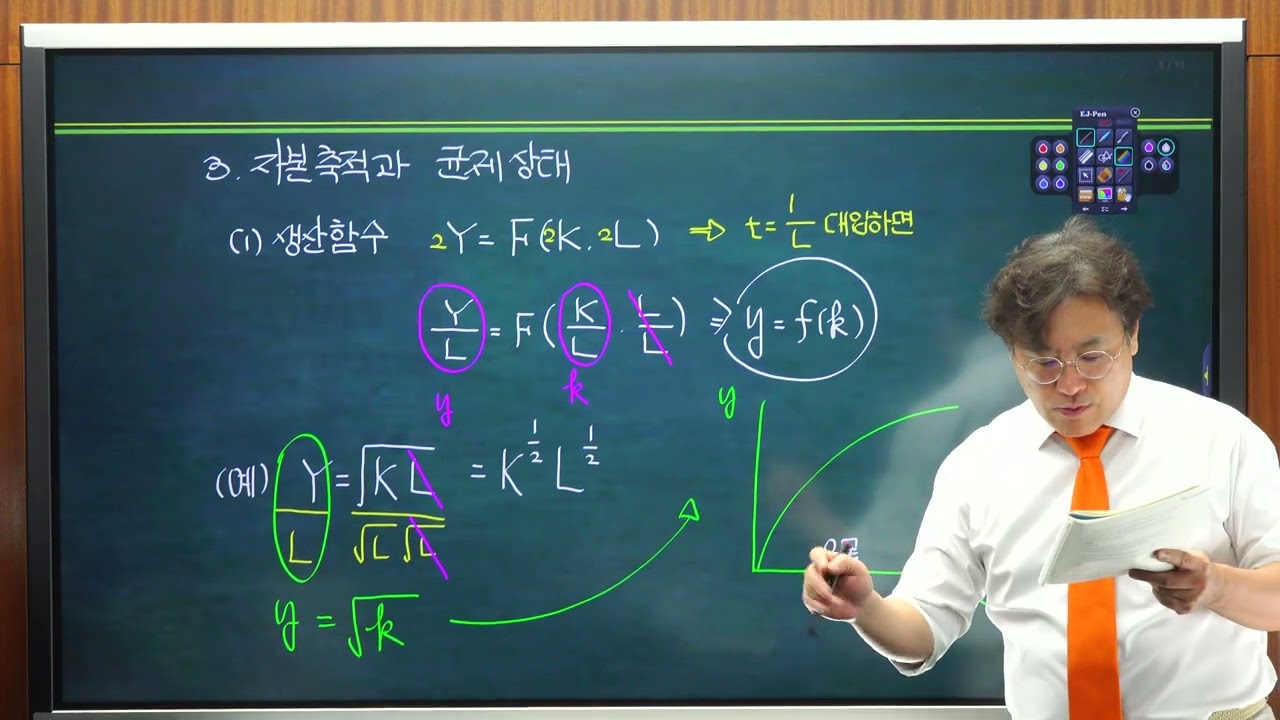 EJ-Pen
3. 자본축적과 균제상태
(1) 생산함수 2Y = F(2K, 2L) ⇒ t = 1/L 대입하면
Y/L = F(K/L, L/L) ⇒ y = f(k)
y k
y
(예) Y = √KL = K^1/2 L^1/2
L √L √L
y = √k